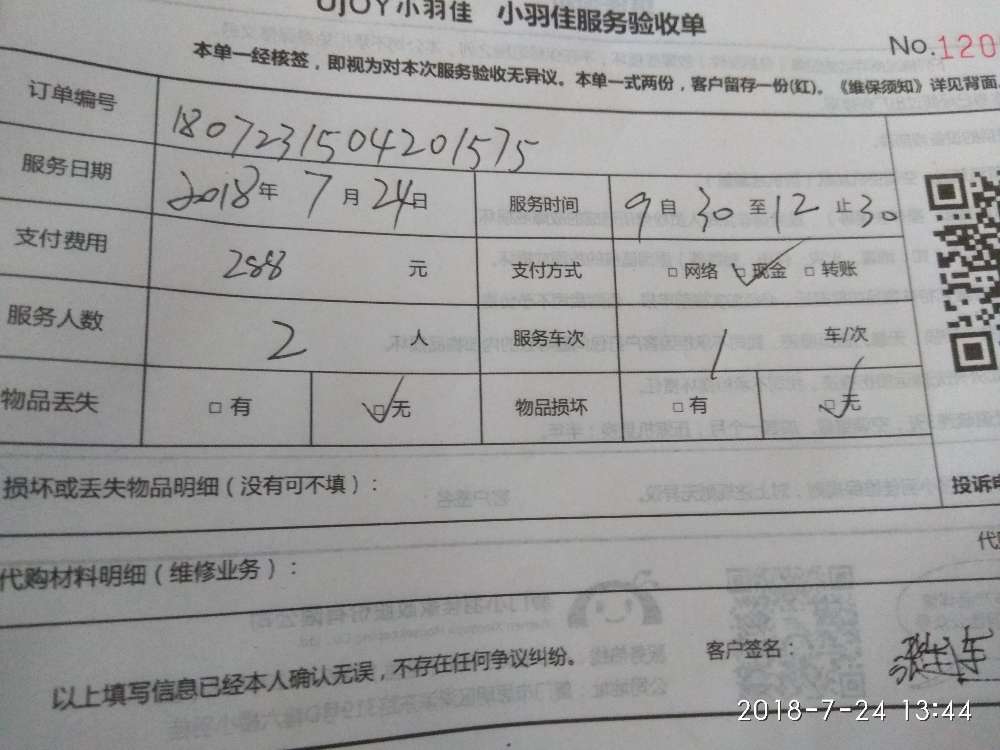 UJOY小羽佳 小羽佳服务验收单
No.120
本单一经核签，即视为对本次服务验收无异议。本单一式两份，客户留存一份(红)。《维保须知》详见背面
订单编号 1807231504201575
服务日期 2018年 7月 24日 服务时间 9自30至12止30
支付费用 288 元 支付方式 □网络 ☑现金 □转账
服务人数 2 人 服务车次 1 车/次
物品丢失 □有 ☑无 物品损坏 □有 ☑无
损坏或丢失物品明细（没有可不填）：
投诉
代购材料明细（维修业务）：
以上填写信息已经本人确认无误，不存在任何争议纠纷。
客户签名：
2018-7-24 13:44